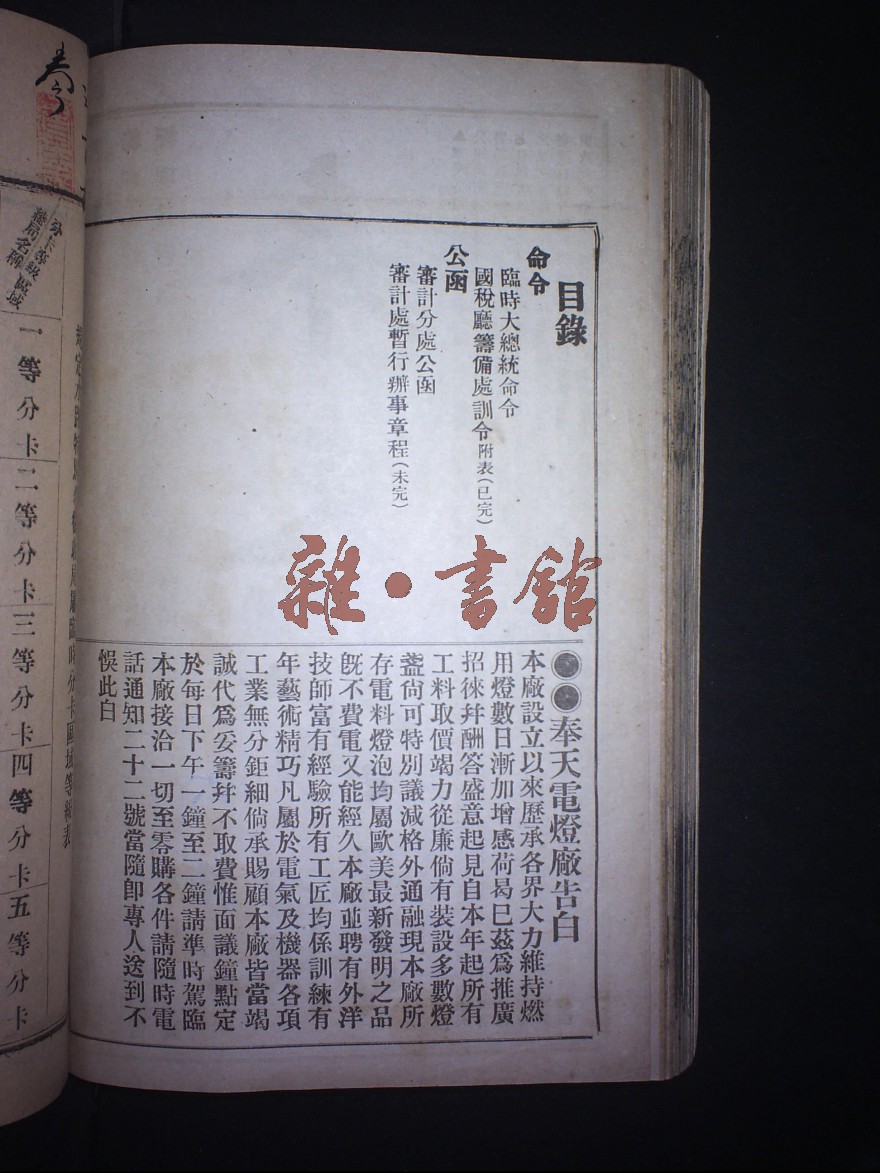 目錄
命令
臨時大總統命令
國稅廳籌備處訓令附表(已完)
公函
審計分處公函
審計處暫行辦事章程(未完)
雜·書館
●●奉天電燈廠告白
本廠設立以來歷承各界大力維持燃
用燈數日漸加增感荷曷已茲爲推廣
招徠幷酬答盛意起見自本年起所有
工料取價竭力從廉倘有裝設多數燈
盞尙可特別議減格外通融現本廠所
存電料燈泡均屬歐美最新發明之品
旣不費電又能經久本廠並聘有外洋
技師富有經驗所有工匠均係訓練有
年藝術精巧凡屬於電氣及機器各項
工業無分鉅細倘承賜顧本廠皆當竭
誠代爲妥籌幷不取費惟面議鐘點定
於每日下午一鐘至二鐘請準時駕臨
本廠接洽一切至零購各件請隨時電
話通知二十二號當隨卽專人送到不
悞此白
分卡等級
區域
稅局名稱
一等分卡
二等分卡
三等分卡
四等分卡
五等分卡